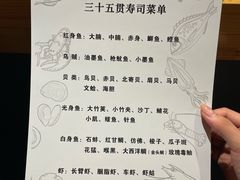 三十五贯寿司菜单
红身鱼：大腩、中腩、赤身、鲫鱼、鲣鱼
乌 贼：油墨鱼、枪鱿鱼、小墨鱼
贝 类：乌贝、赤贝、北寄贝、扇贝、马贝
文蛤、海胆
光身鱼：大竹荚、小竹夹、沙丁、鲭花
小肌、鱵鱼、针鱼
白身鱼：石鲈、红甘鲷、仿佛、梭子、瓜子斑
花猛、喉黑、大西洋鲷（金头鲷）玫瑰毒鲉
虾：长臂虾、胭脂虾、车虾、虾蛄